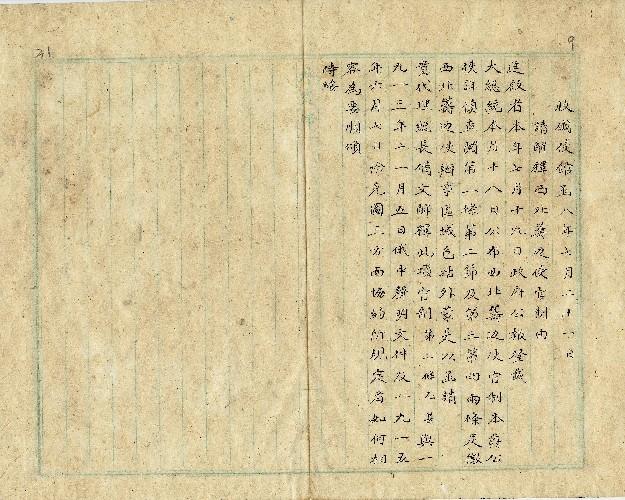 收俄使館函八年七月二十一日
請解釋西北籌边使官制由
逕啟者本年七月十九日政府公報登載
大總統本月十八日公布西北籌边使官制本爵公
使詳偵查閱第一條第二第及第三第四兩條足徵
西北籌边使辦事區域包括外蒙是以函請
貴代理總長備文解釋此項官制第二條尤其與一
九一三年十一月五日俄中聲明文件及一九一五
年六月七日恰克圖三方面協約所規定者如何相
容為要順頌
時綏
9
21